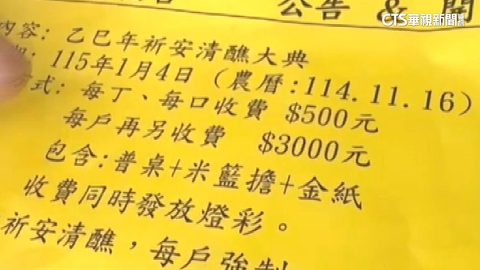 公告 & 開
CTS華視新聞
內容: 乙巳年祈安清醮大典
: 115年1月4日 (農曆:114.11.16)
式: 每丁、每口收費 $500元
每戶再另收費 $3000元
包含:普桌+米籃擔+金紙
收費同時發放燈彩。
祈安清醮,每戶強制